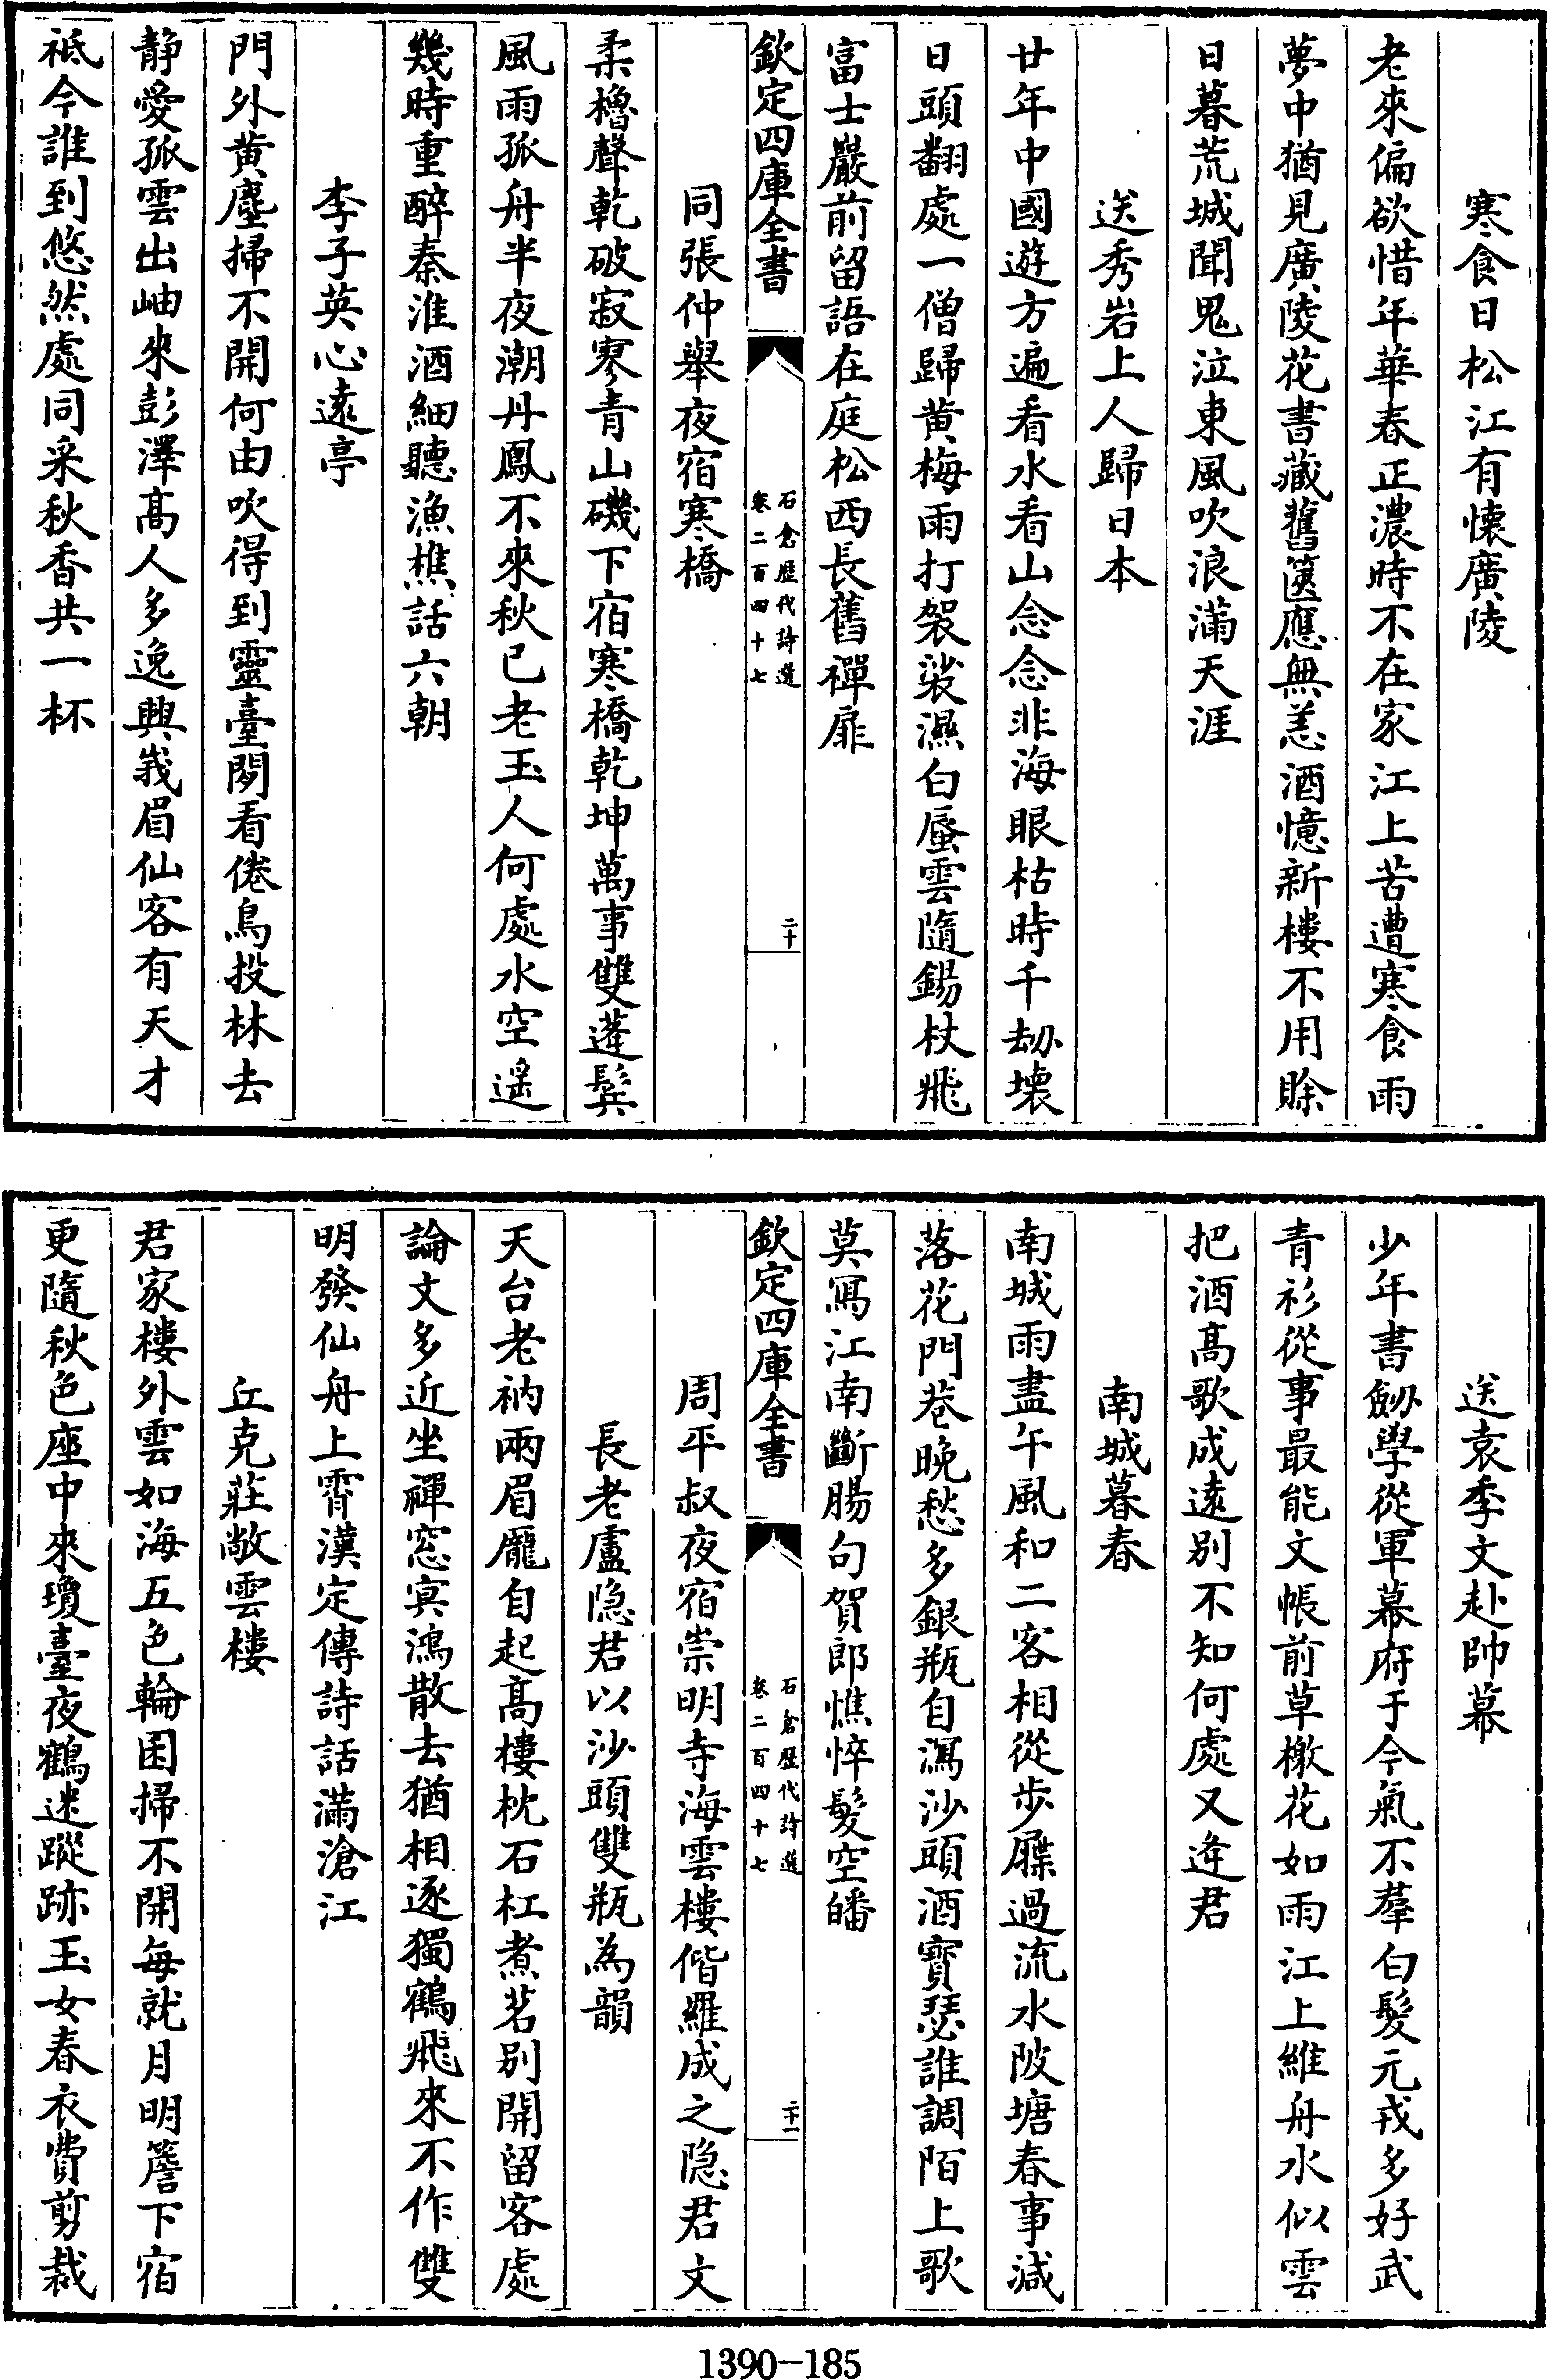 寒食日松江有懐廣陵
老來偏欲惜年華春正濃時不在家江上苦遭寒食雨
夢中猶見廣陵花書藏舊篋應無恙酒憶新樓不用賖
日暮荒城聞鬼泣東風吹浪滿天涯
送秀岩上人歸日本
廿年中國遊方遍看水看山念念非海眼枯時千劫壊
日頭翻處一僧歸黄梅雨打袈裟濕白蜃雲隨錫杖飛
富士巖前留語在庭松西長舊禪扉
欽定四庫全書
石倉歷代詩選
卷二百四十七
二十
同張仲舉夜宿寒橋
柔櫓聲乾破寂寥青山磯下宿寒橋乾坤萬事雙蓬鬂
風雨孤舟半夜潮丹鳳不來秋已老玉人何處水空遥
幾時重醉秦淮酒細聽漁樵話六朝
李子英心逺亭
門外黄塵掃不開何由吹得到靈臺閒看倦鳥投林去
静愛孤雲出岫來彭澤髙人多逸興峩眉仙客有天才
祗今誰到悠然處同采秋香共一杯
送袁季文赴帥幕
少年書劒學從軍幕府于今氣不羣白髪元戎多好武
青衫從事最能文帳前草檄花如雨江上維舟水似雲
把酒髙歌成逺别不知何處又逄君
南城暮春
南城雨盡午風和二客相從步屧過流水陂塘春事減
落花門巷晩愁多銀瓶自瀉沙頭酒寳瑟誰調陌上歌
莫寫江南斷腸句賀郎憔悴髪空皤
欽定四庫全書
石倉歷代詩選
卷二百四十七
二十一
周平叔夜宿崇明寺海雲樓偕羅成之隐君文
長老盧隐君以沙頭雙瓶為韻
天台老衲兩眉龎自起髙樓枕石杠煮茗别開留客處
論文多近坐禪窓㝠鴻散去猶相逐獨鶴飛來不作雙
明發仙舟上霄漢定傳詩話滿滄江
丘克莊敞雲樓
君家樓外雲如海五色輪囷掃不開毎就月明簷下宿
更隨秋色座中來瓊臺夜鶴迷蹤跡玉女春衣費剪裁
1390-185